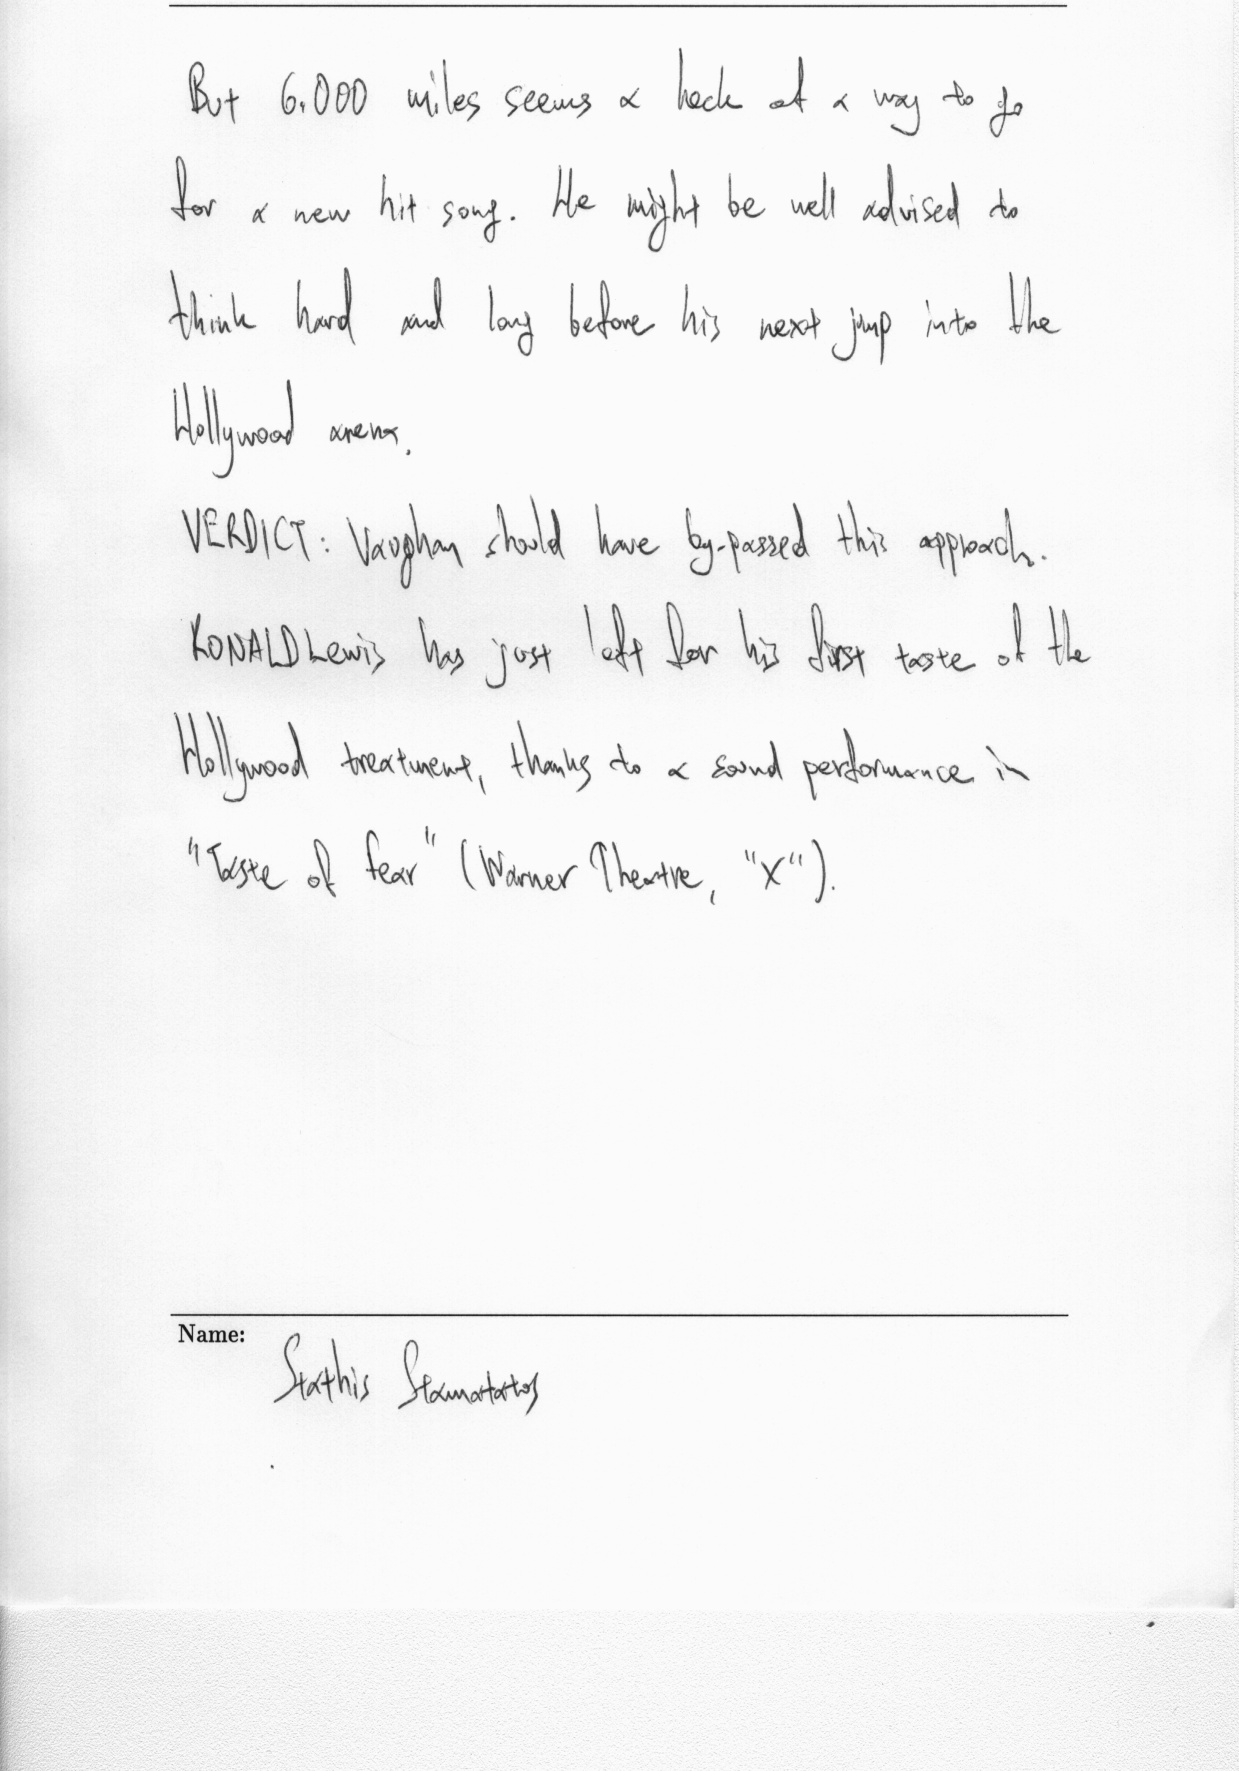 But 6.000 miles seems a heck of a way to go
for a new hit song. He might be well advised to
think hard and long before his next jump into the
Hollywood arena.
VERDICT: Vaughan should have by-passed this approach.
RONALD Lewis has just left for his first taste of the
Hollywood treatment, thanks to a sound performance in
"Taste of fear" (Warner Theatre, "X").
Name:
Stathis Stamatatos